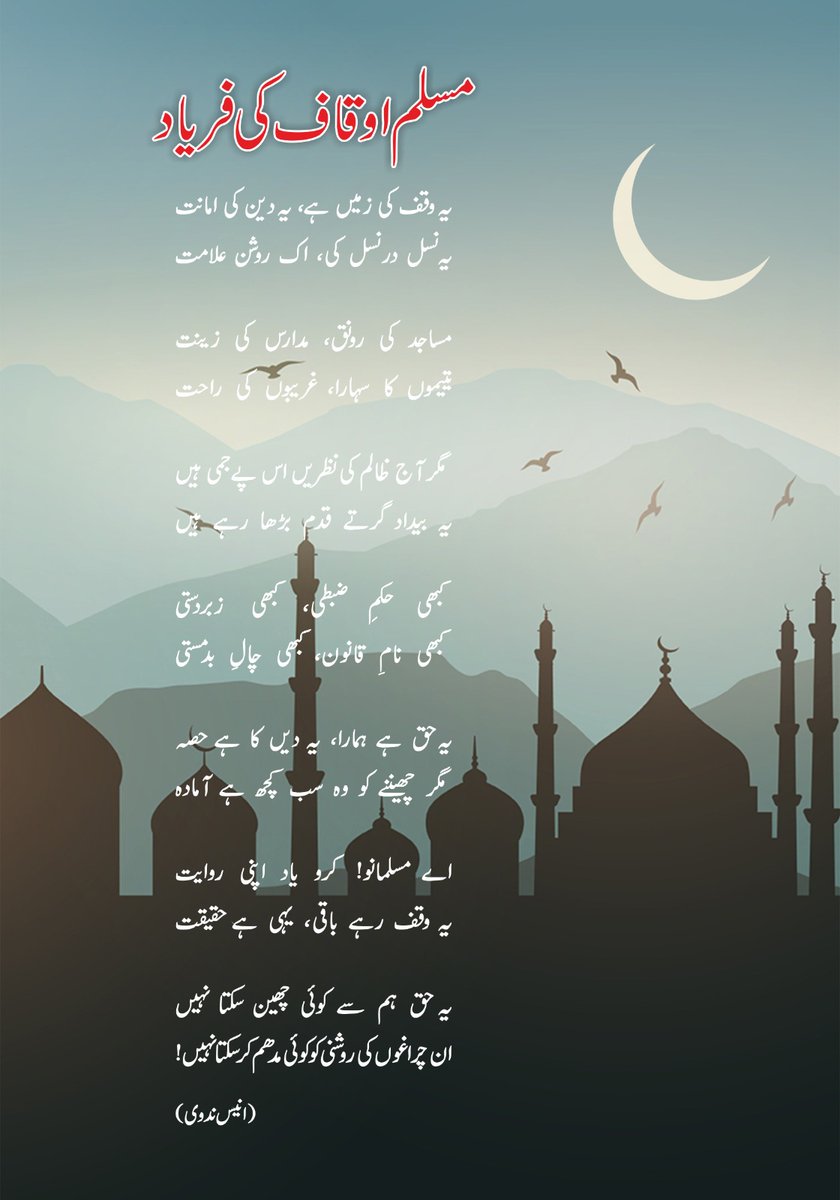 مسلم اوقاف کی فریاد
یہ وقف کی زمیں ہے، یہ دین کی امانت
یہ نسل در نسل کی، اک روشن علامت
مساجد کی رونق، مدارس کی زینت
یتیموں کا سہارا، غریبوں کی راحت
مگر آج ظالم کی نظریں اس پے جمی ہیں
یہ بیداد گرتے قدم بڑھا رہے ہیں
کبھی حکمِ ضبطی، کبھی زبردستی
کبھی نامِ قانون، کبھی چالِ بدمستی
یہ حق ہے ہمارا، یہ دیں کا ہے حصہ
مگر چھیننے کو وہ سب کچھ ہے آمادہ
اے مسلمانو! کرو یاد اپنی روایت
یہ وقف رہے باقی، یہی ہے حقیقت
یہ حق ہم سے کوئی چھین سکتا نہیں
ان چراغوں کی روشنی کو کوئی مدھم کر سکتا نہیں!
(انیس ندوی)